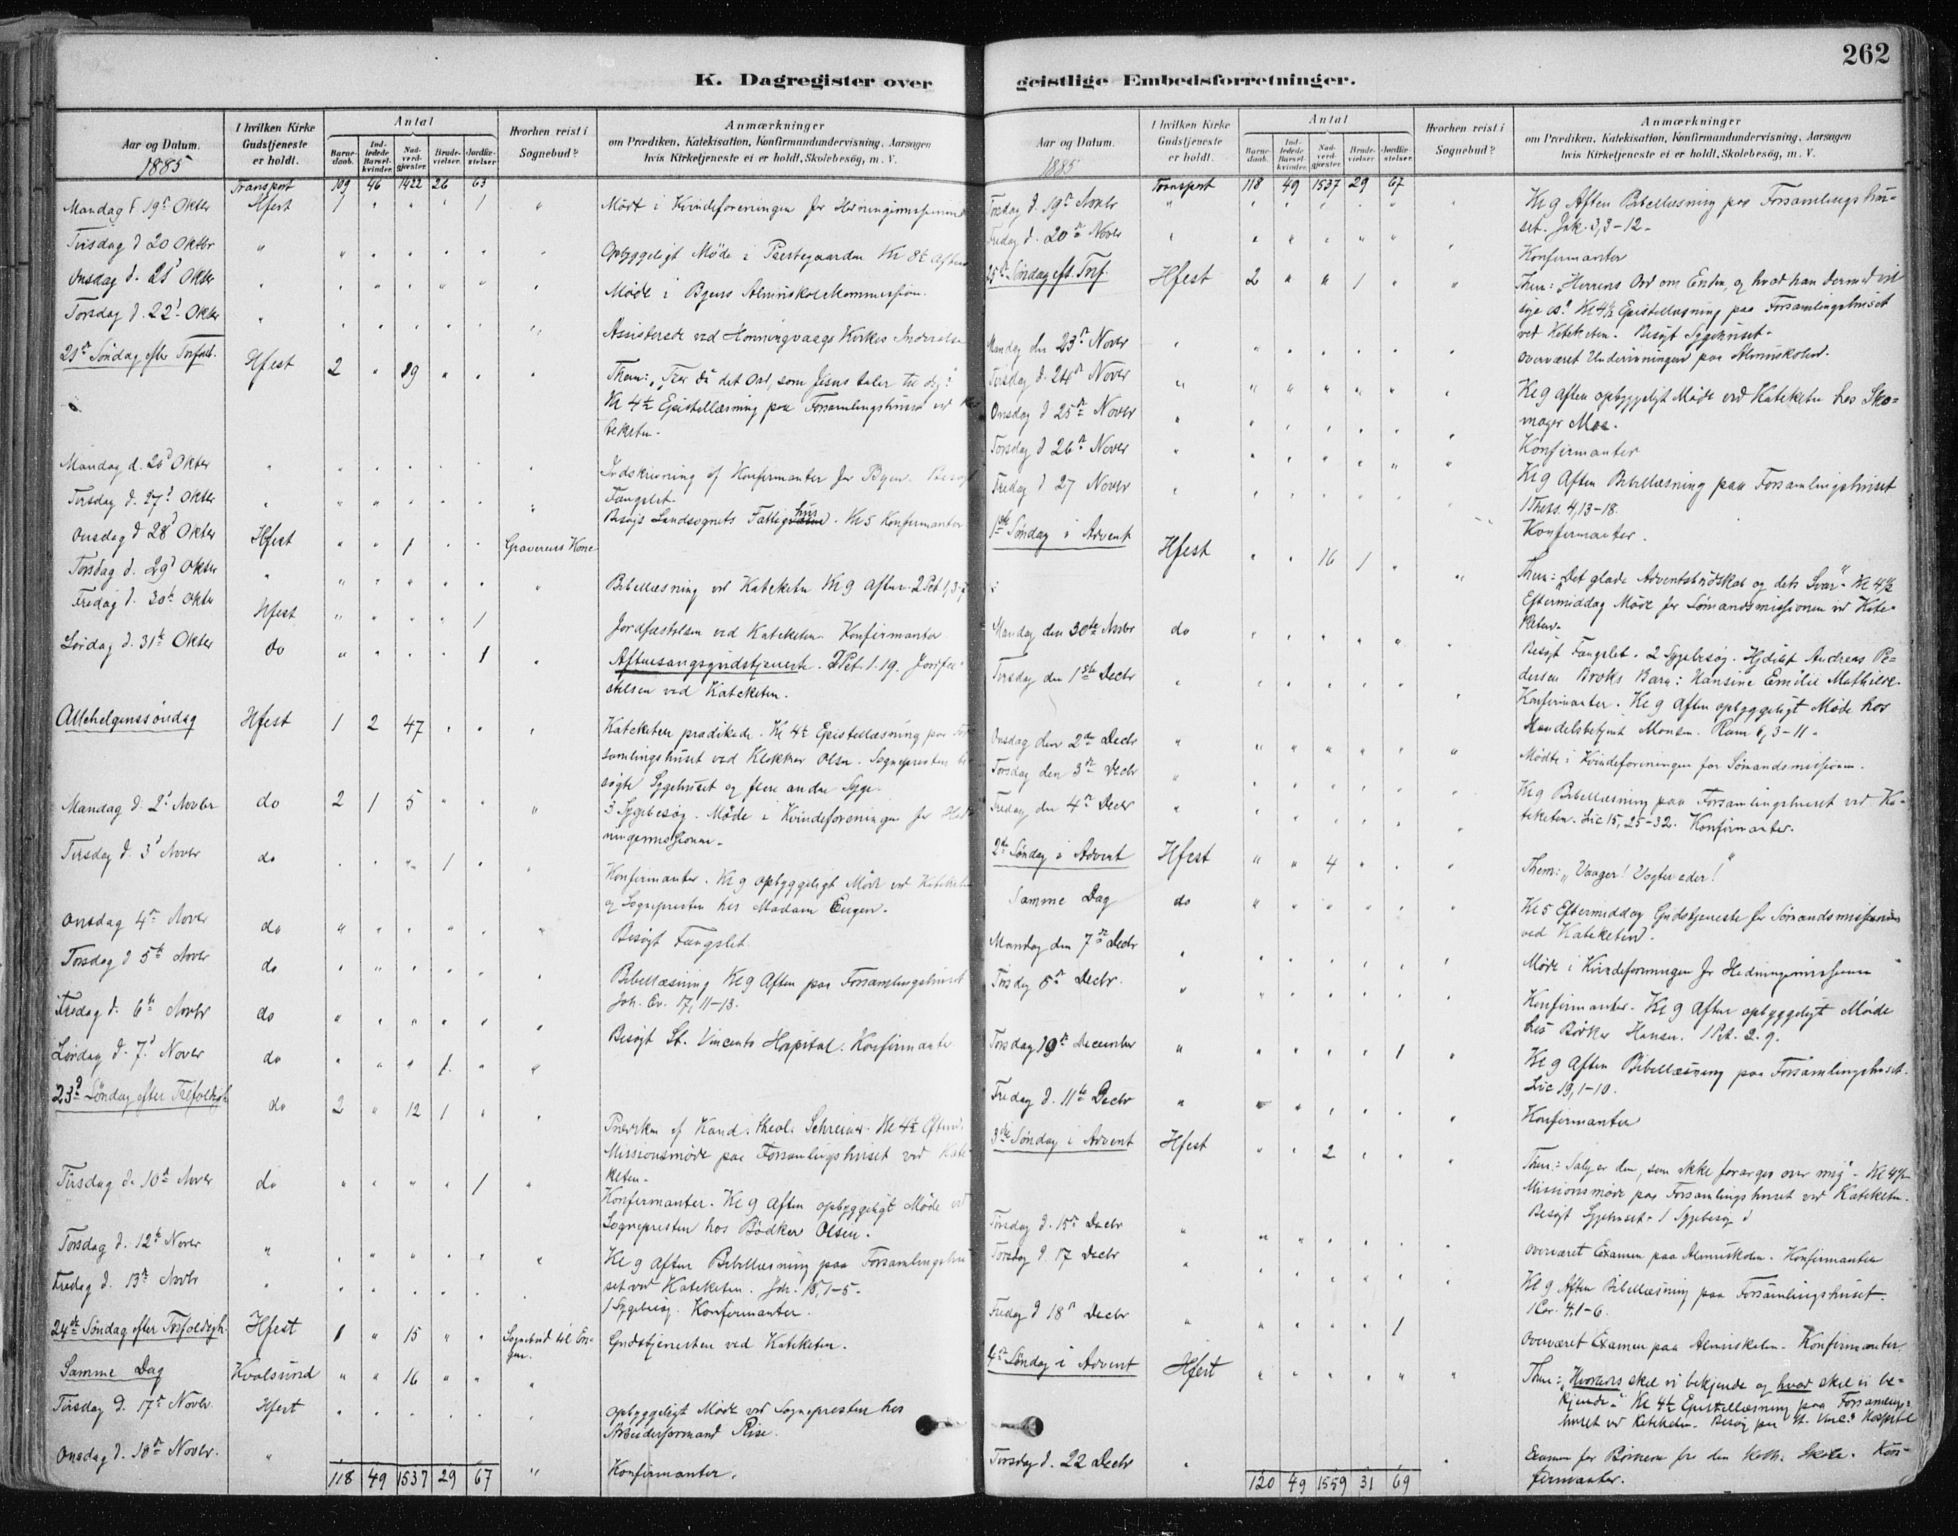 262
K. Dagregister over
Aar og Datum.
1885
I hvilken Kirke Gudstjeneste er holdt.
Antal
Barnedaab.
Indledede Barselkvinder.
Nadverdgjæster.
Brudevielser.
Jordfæstelser
Hvorhen reist i Sognebud?
Anmærkninger
om Prædiken, Katekisation, Konfirmandundervisning, Aarsagen
hvis Kirketjeneste ei er holdt, Skolebesög, m. V.
Transport 109 46 1422 26 63
Mandag d 19 Oktbr Hfest 1 " " " 1 " Møde i Kvindeforeningen for Hedningemissionen
Tirsdag d 20 Oktbr " Opbyggeligt Møde i Prestegaarden Kl 8½ Aften
Onsdag d. 21 Oktbr " Møde i Byens Almueskolekommission.
Torsdag d. 22 Oktbr " Assisterede ved Honningvaags Kirkes Indvielse
21de Søndag efter Trefold. Hfest 2 " 19 " " " Thema: "Tror du det Ord, som Jesus taler til dig?"
Kl 4½ Epistellæsning paa Forsamlingshuset ved Kateketen.
Mandag d. 26 Oktbr " Indskrivning af Konfirmanter for Byen. Besøgt
Tirsdag d. 27 Oktbr " Fængslet.
Onsdag d 28 Oktbr Hfest " " 1 " " Graverens Kone Besøgt Landsognets Fattighus. Kl 5 Konfirmanter
Torsdag d. 29 Oktbr " Bibellæsning ved Kateketen Kl 9 Aften
Fredag d. 30te Oktbr Hfest " " " " 1 Jordfæstelsen ved Kateketen. Konfirmanter
Lørdag d. 31te Oktbr do " " " " 1 " Aftensangsgudstjeneste. 2 Pet. 1. 19. Jordfæstelsen ved Kateketen.
Allehelgenssöndag Hfest 1 2 47 " " " Kateketen prædikede. Kl 4½ Epistellæsning paa Forsamlingshuset ved Klokker Olsen. Sognepresten besøgte Sygehuset og flere andre Syge.
Mandag d. 2 Novbr do 2 1 5 " " " 3 Sygebesøg. Møde i Kvindeforeningen for Hedningemissionen.
Tirsdag d. 3 Novbr do " " " 1 " " Konfirmanter. Kl 9 opbyggeligt Møde ved Kateketen
og Sognepresten hos Madam Eugen.
Onsdag 4de Novbr do " Besøgt Fængslet.
Torsdag d 5te Novbr do " Bibellæsning Kl 9 Aften paa Forsamlingshuset
Joh. Ev. 17, 11-13.
Fredag d. 6te Novbr do " Besøgt St. Vincents Hospital. Konfirmanter.
Lørdag d. 7 Novbr do " " " 1 " "
23de Söndag efter Trefoldigh. do 2 " 12 1 " " Prædiken af Kand. theol. Schreiner. Kl 4½ Efterm.
Missionsmøde paa Forsamlingshuset ved Kateketen.
Tirsdag d. 10de Novbr do " " " " 1 " Konfirmanter. Kl 9 Aften opbyggeligt Møde ved
Sognepresten hos Bødker Olsen.
Torsdag d. 12te Novbr " Kl 9 Aften Bibellæsning paa Forsamlingshuset ved Kateketen. Joh. 15, 1-5.
Fredag d. 13de Novbr " 1 Sygebesøg. Konfirmanter.
24de Søndag efter Trefoldigh. Hfest 1 " 15 " " Sognebud til Gudstjenesten ved Kateketen.
Samme Dag Kvalsund " " 16 " " "
Tirsdag d. 17de Novbr. Hfest " opbyggeligt Møde ved Sognepresten hos
Arbeidsformand Riise.
Onsdag d. 18de Novbr. " Konfirmanter.
118 49 1537 29 67
geistlige Embedsforretninger.
Aar og Datum.
1885
I hvilken Kirke Gudstjeneste er holdt.
Antal
Barnedaab.
Indledede Barselkvinder.
Nadverdgjæster.
Brudevielser.
Jordfæstelser
Hvorhen reist i Sognebud?
Anmærkninger
om Prædiken, Katekisation, Konfirmandundervisning, Aarsagen
hvis Kirketjeneste ei er holdt, Skolebesög, m. V.
Transport 118 49 1537 29 67
Torsdag d. 19de Novbr " Kl 9 Aften Bibellæsning paa Forsamlingshuset. Jak. 3, 3-12.
Fredag d. 20de Novbr " Konfirmanter
25de Søndag eft. Tref. Hfest 2 " " 1 " " Them: Herrens Ord om Enden, og hvad han dermed vil
sige os? Kl 4½ Epistellæsning paa Forsamlingshuset
ved Kateketen. Besøgt Sygehuset.
Mandag den 23de Novbr " overværet Undervisningen paa Almueskolen.
Tirsdag d. 24de Novbr " Kl 9 Aften opbyggeligt Møde ved Kateketen hos Skomager Moe.
Onsdag d 25de Novbr "
Torsdag d 26de Novbr " Konfirmanter
Fredag d 27 Novbr " Kl 9 Aften Bibellæsning paa Forsamlingshuset
1 Thess. 4, 13-18.
Konfirmanter.
1ste Søndag i Advent Hfest " " 16 1 " " Them: "Det glade Adventsbudskab og dets Svar". Kl 4½
Eftermiddag Møde for Sømandsmissionen ved Kateketen.
Mandag den 30te Novbr do " Besøgt Fængslet. 2 Sygebesøg. Hjdøbt Andreas Pedersen Broks Barn: Hansine Emilie Mathilde.
Tirsdag den 1ste Decbr " Konfirmanter. Kl 9 Aften opbyggeligt Møde hos
Handelsbetjent Monsen. Rom 6, 3-11.
Onsdag den 2den Decbr " Mødte i Kvindeforeningen for Sømandsmissionen.
Torsdag den 3de Decbr " Kl 9 Bibellæsning paa Forsamlingshuset ved Kateketen. Luc 15, 25-32. Konfirmanter.
Fredag den 4de Decbr "
2den Søndag i Advent Hfest " " 4 " " " Them: "Vaager! Vogter eder!"
Samme Dag do " Kl 5 Eftermiddag Gudstjeneste for Sømandsmissionen
ved Kateketen.
Mandag den 7de Decbr " Møde i Kvindeforeningen for Hedningemissionen
Tirsdag 8de Decbr. " Konfirmanter. Kl 9 Aften opbyggeligt Møde
hos Bødker Hansen. 1 Pet. 2. 9.
Torsdag 10de December " " " " " 1 " Kl 9 Aften Bibellæsning paa Forsamlingshuset.
Luc 19, 1-10.
Fredag d. 11te Decbr " Konfirmanter
3die Søndag i Advent Hfest " " 2 " " " Them: Salig er den, som ikke forarges over mig". Kl 4½
Missionsmøde paa Forsamlingshuset ved Kateketen.
Besøgt Sygehuset. 1 Sygebesøg
Tirsdag d. 15de Decbr " overværet Examen paa Almueskolen. Konfirmanter
Torsdag d 17 Decbr " Kl 9 Aften Bibellæsning paa Forsamlingshuset.
1 Cor. 4, 1-6.
Fredag d 18de Decbr " " " " " 1 overværet Examen paa Almueskolen. Konfirmanter
4de Søndag i Advent Hfest " Them: "Hvorledes skal vi bekjende og hvad skal vi bekjende". Kl 4½ Epistellæsning paa Forsamlingshuset ved Kateketen. Besøg paa St. Vinc. Hospital
Torsdag d. 22 Decbr " Examen for Børnene fra den Kath. Skole. Konfirmanter.
120 49 1559 31 69